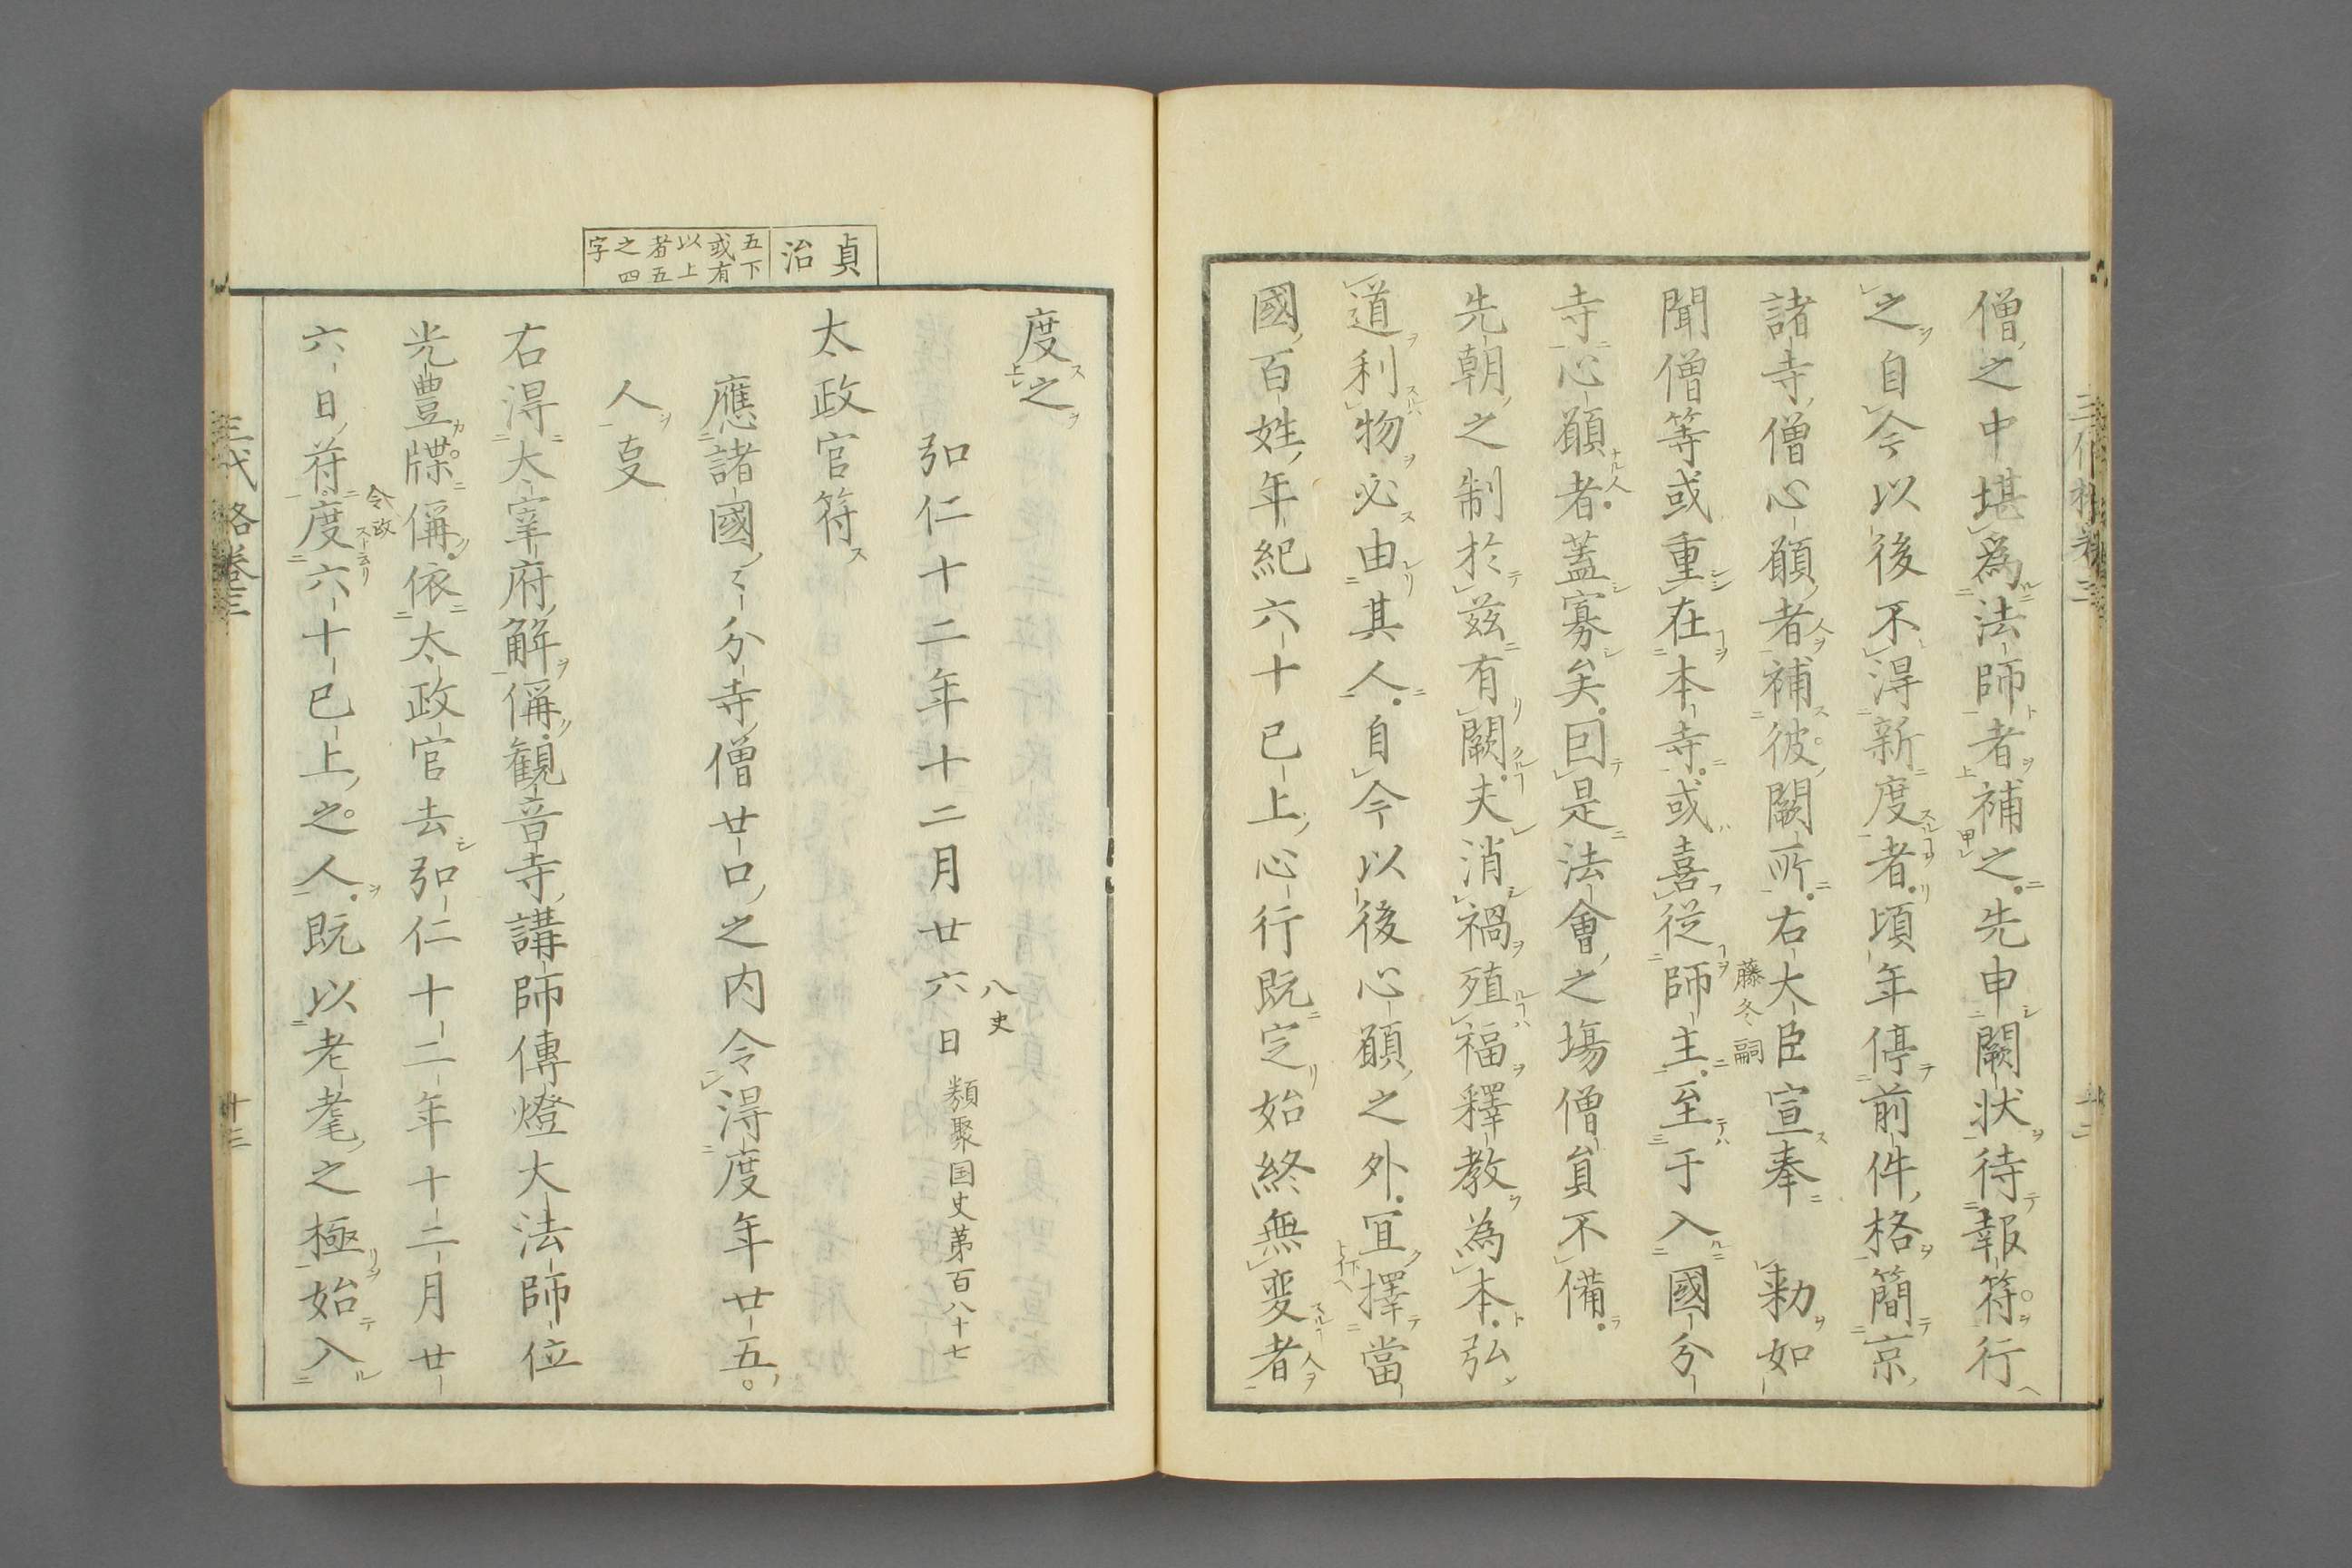 僧之中堪為法師者補之先申闕状待報符行
之自今以後不得新度者頃年停前件格簡京
諸寺僧心願者補彼闕所右大臣宣奉　勅如
藤冬嗣
聞僧等或重在本寺或喜従師主至于入國分
寺心願者蓋寡矣囙是法會之塲僧負不備
先朝之制於兹有闕夫消禍殖福釋教為本弘
道利物必由其人自今以後心願之外宜擇當
國百姓年紀六十已上心行既定始終無変者
貞治
五下或有以上者五之四字
度之
弘仁十二年十二月廿六日 類聚国史第百八十七
八史
太政官符
應諸國〻分寺僧廿口之内令得度年廿五
人叓
右得大宰府解偁観音寺講師傳燈大法師位
光豊牒偁依太政官去弘仁十二年十二月廿
六日符度六十已上之人既以老耄之極始入
令政
三代格巻三
十三